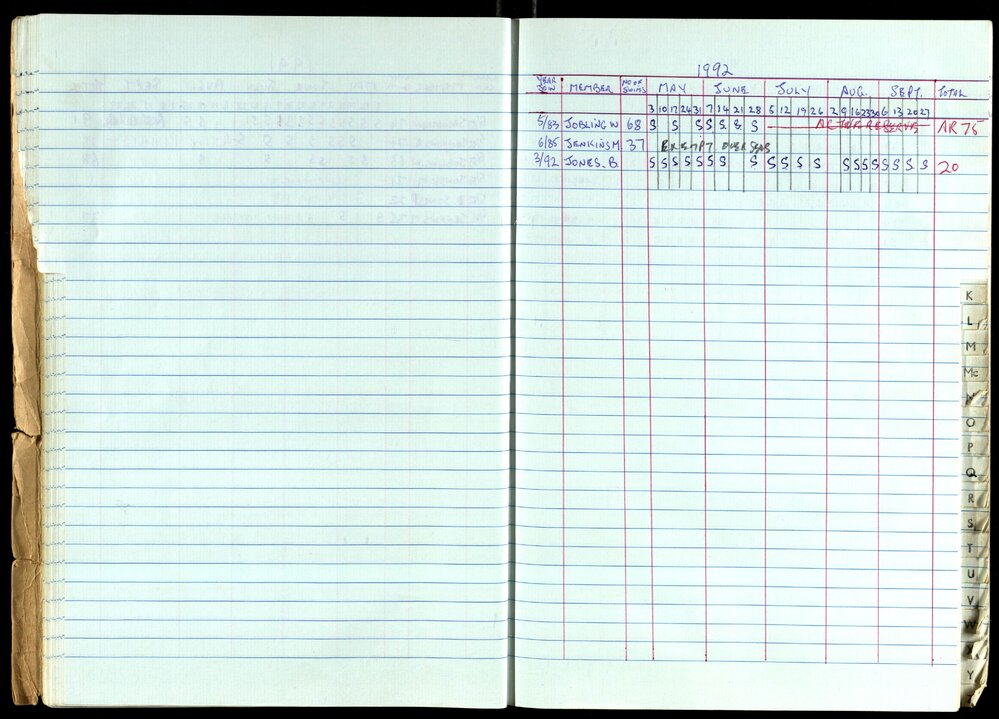 1992
YEAR JOW MEMBER NO OF SWIMS MAY JUNE JULY AUG. SEPT. TOTAL
3 10 17 24 31 7 14 21 28 5 12 19 26 2 9 16 23 30 6 13 20 27
5/83 JOBLING W 68 S S S S S S S ACTIVE RESERVE AR 75
6/85 JENKINS M. 37 EXEMPT OVERSEAS
3/92 JONES. B. S S S S S S S S S S S S S S S S S S S S S 20
K
L
M
Mc
N
O
P
Q
R
S
T
U
V
W
X
Y